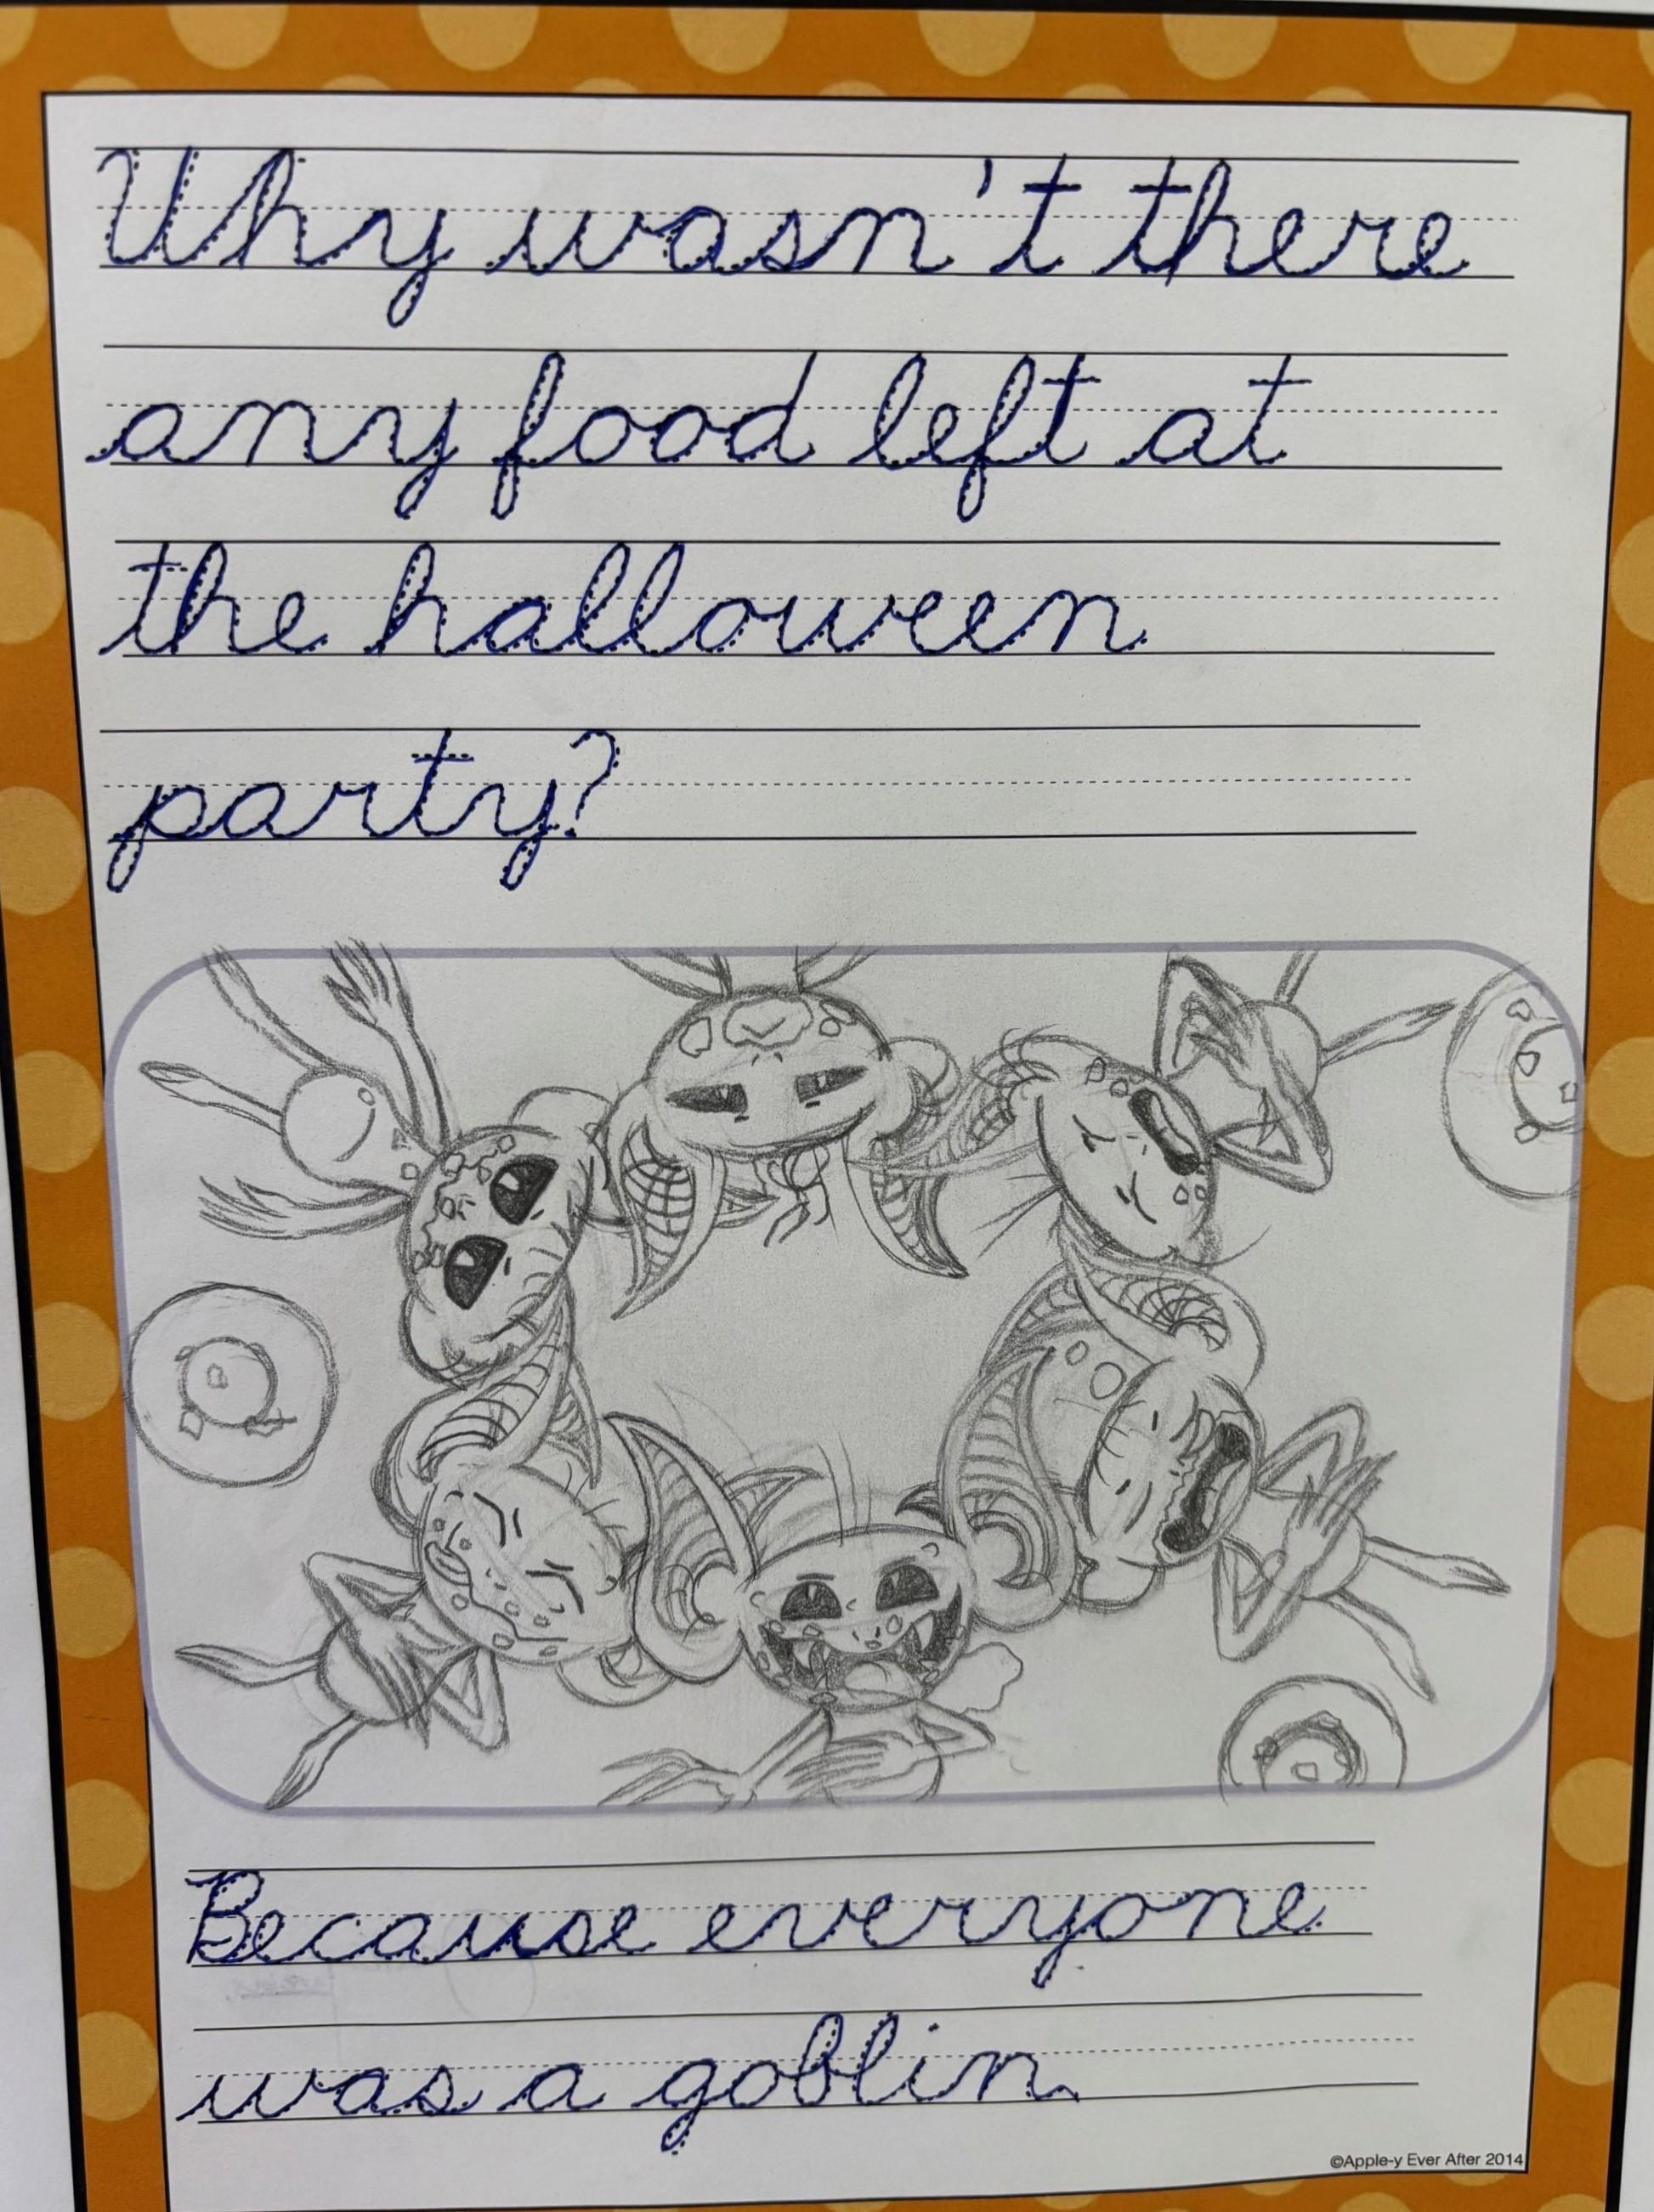 Why wasn't there
any food left at
the halloween
party?
Because everyone
was a goblin.
©Apple-y Ever After 2014